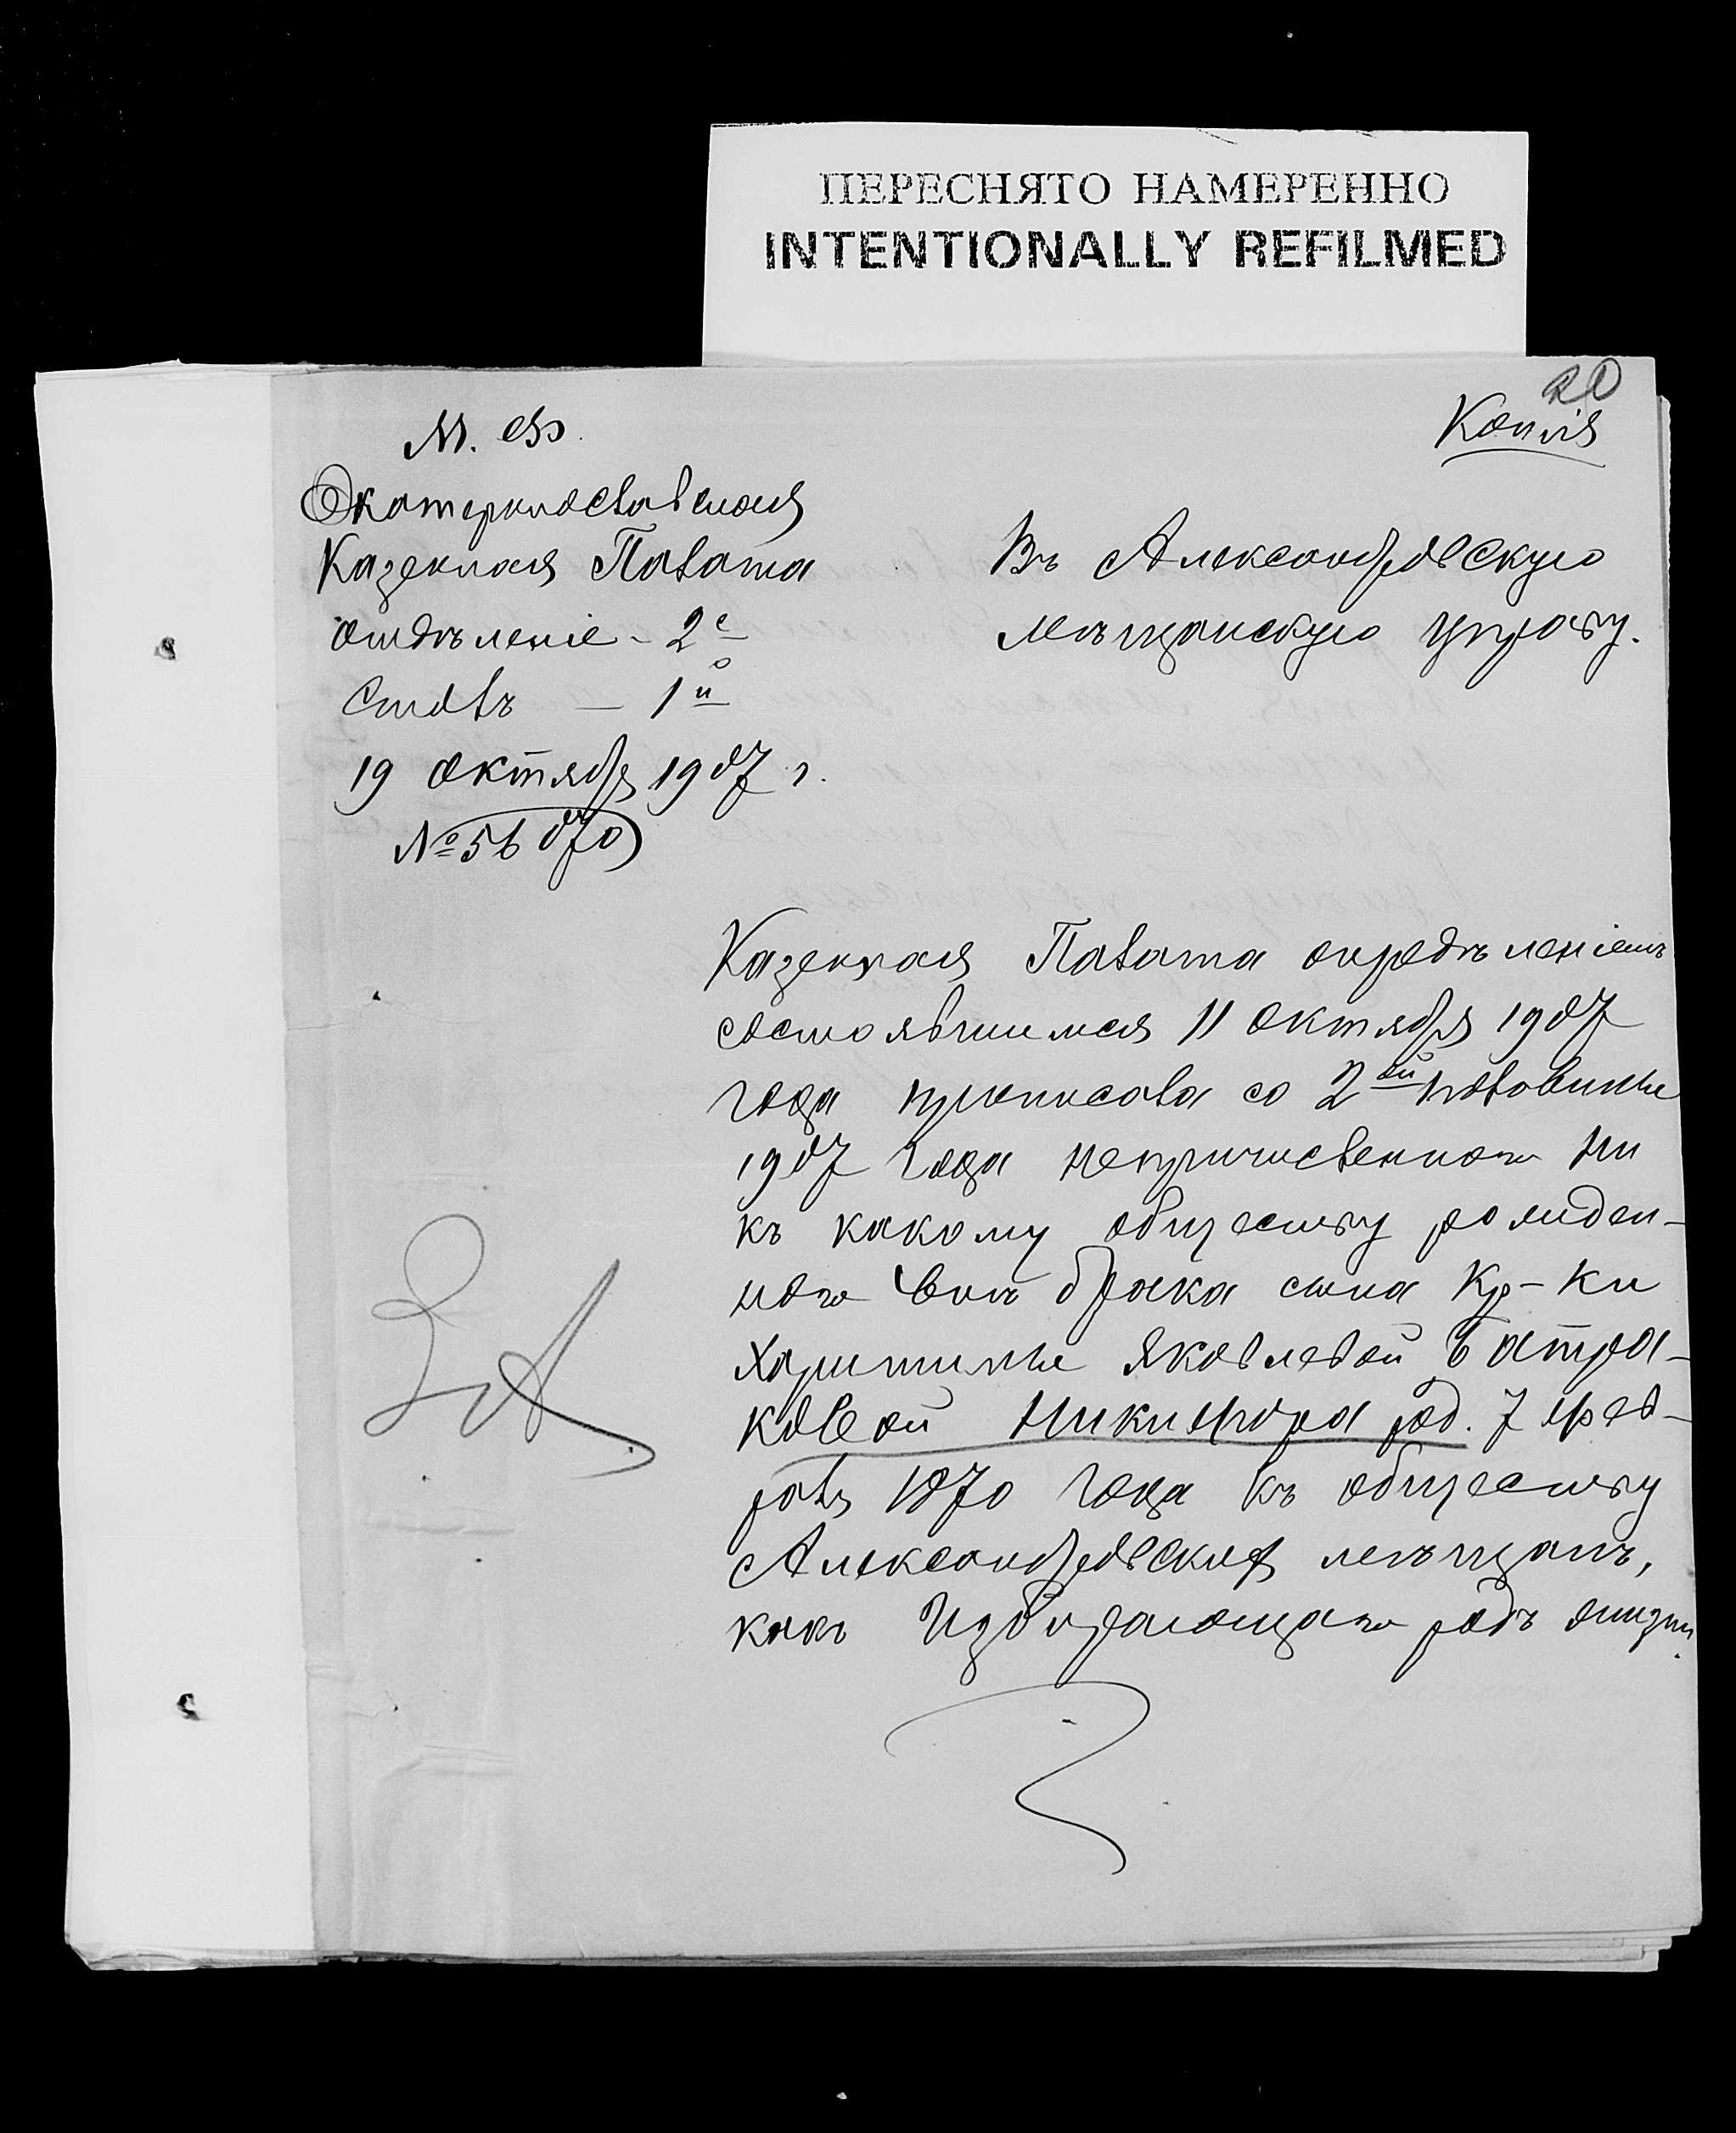 ПЕРЕСНЯТО НАМЕРЕННО
INTENTIONALLY REFILMED
20
Копія
М. Ф.
Екатеринославская
Казенная Палата
Отдѣленіе - 2е
Столъ — 1й
19 Октября 1907 г.
№ 56070
Въ Александровскую
мѣщанскую управу.
Казенная Палата опредѣленіемъ
состоявшимся 11 Октября 1907
года приписала со 2ой половины
1907 года непричисленнаго ни
къ какому обществу рожден-
наго внѣ брака сына Кр-ки
Харитины Яковлевой Батра-
ковой Никифора род. 7 фев-
раля 1870 года къ обществу
Александровскихъ мѣщанъ,
какъ избирающаго родъ жизни.